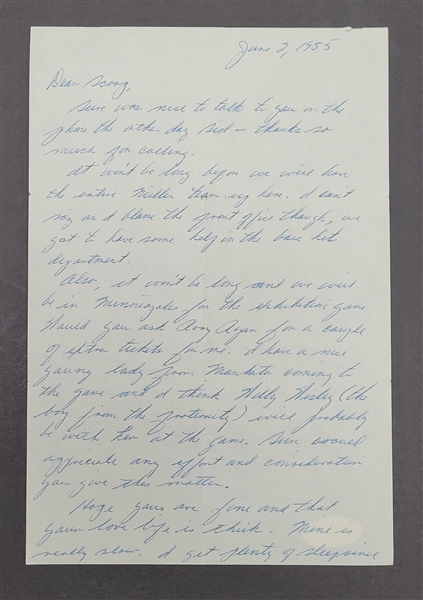 June 2, 1955
Dear Scoog,
Sure was nice to talk to you on the
phone the other day Sid — thanks so
much for calling.
It won't be long before we will have
the entire Miller team up here. I can't
say as I blame the front office though, we
got to have some help in the base hit
department.
Also, it won't be long and we will
be in Minneapolis for the exhibition game.
Would you ask Rosy Ryan for a couple
of extra tickets for me. I have a nice
young lady from Mankato coming to
the game and I think Willy (the
boy from the fraternity) will probably
be with her at the game. Sure would
appreciate any effort and consideration
you give this matter.
Hope yours are fine and that
your love life is thick. Mine is
really slow. I get plenty of sleep since